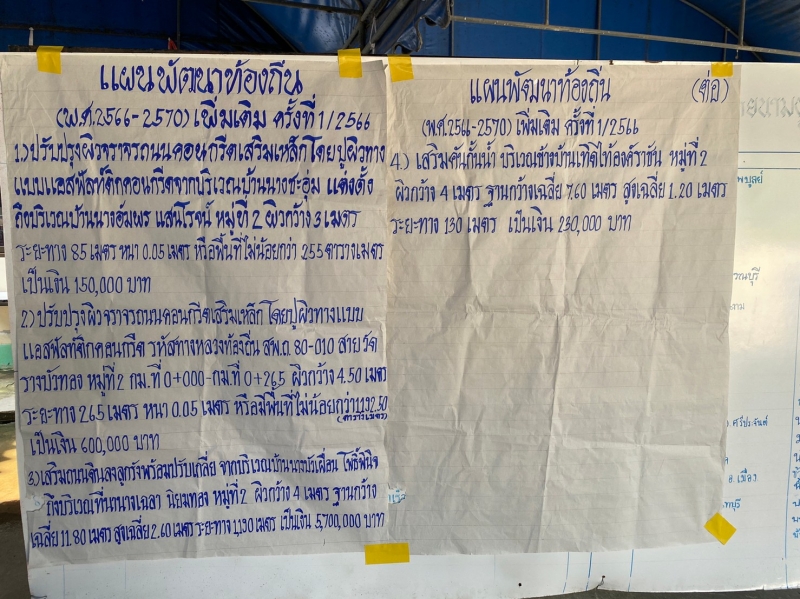 แผนพัฒนาท้องถิ่น
(พ.ศ.2566-2570) เพิ่มเติม ครั้งที่ 1/2566
1.) ปรับปรุงผิวจราจรถนนคอนกรีตเสริมเหล็ก โดยปูผิวทาง
แบบแอสฟัลท์ติกคอนกรีตจากบริเวณบ้านนางชะอุ่ม แต่งตั้ง
ถึงบริเวณบ้านนางอัมพร แสนโรจน์ หมู่ที่ 2 ผิวกว้าง 3 เมตร
ระยะทาง 85 เมตร หนา 0.05 เมตร หรือพื้นที่ไม่น้อยกว่า 255 ตารางเมตร
เป็นเงิน 150,000 บาท
2.) ปรับปรุงผิวจราจรถนนคอนกรีตเสริมเหล็ก โดยปูผิวทางแบบ
แอสฟัลท์ติกคอนกรีต รหัสทางหลวงท้องถิ่น สพ.ถ. 80-010 สาย วัด
รางบัวทอง หมู่ที่ 2 กม.ที่ 0+000-กม.ที่ 0+265 ผิวกว้าง 4.50 เมตร
ระยะทาง 265 เมตร หนา 0.05 เมตร หรือมีพื้นที่ไม่น้อยกว่า 1,192.50
(ตารางเมตร)
เป็นเงิน 600,000 บาท
3.) เสริมถนนดินลงลูกรังพร้อมปรับเกลี่ย จากบริเวณบ้านนางบัวเผื่อน โพธิ์พินิจ
ถึงบริเวณที่นานางเฉลา นิยมทอง หมู่ที่ 2 ผิวกว้าง 4 เมตร ฐานกว้าง
เฉลี่ย 11.80 เมตร สูงเฉลี่ย 2.60 เมตร ระยะทาง 1,130 เมตร เป็นเงิน 5,700,000 บาท
แผนพัฒนาท้องถิ่น (ต่อ)
(พ.ศ.2566-2570) เพิ่มเติม ครั้งที่ 1/2566
4.) เสริมคันกั้นน้ำ บริเวณข้างบ้าน หมู่ที่ 2
ผิวกว้าง 4 เมตร ฐานกว้างเฉลี่ย 7.60 เมตร สูงเฉลี่ย 1.20 เมตร
ระยะทาง 130 เมตร เป็นเงิน 230,000 บาท